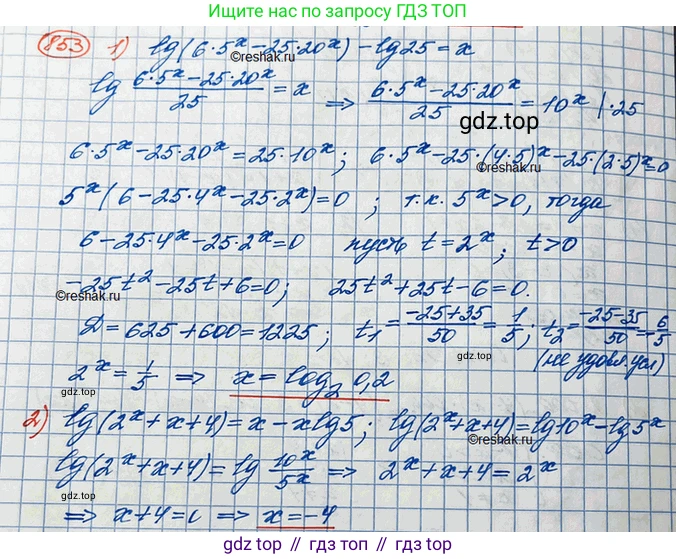 Ищите по запросу ГДЗ ТОП
853 1) lg(6·5^x-25·20^x)-lg25=x
©reshak.ru
lg (6·5^x-25·20^x)/25=x ⇒ (6·5^x-25·20^x)/25=10^x |·25
gdz.top
6·5^x-25·20^x=25·10^x; 6·5^x-25·(4·5)^x-25·(2·5)^x=0
©reshak.ru
5^x(6-25·4^x-25·2^x)=0 ; т.к. 5^x>0, тогда
6-25·4^x-25·2^x=0 пусть t=2^x; t>0
-25t²-25t+6=0; 25t²+25t-6=0.
©reshak.ru
D=625+600=1225; t₁=(-25+35)/50=1/5; t₂=(-25-35)/50=-6/5
gdz.top
(не удовл. усл)
2^x=1/5 ⇒ x=log₂0,2
2) lg(2^x+x+4)=x-xlg5; lg(2^x+x+4)=lg10^x-lg5^x
©reshak.ru
lg(2^x+x+4)=lg 10^x/5^x ⇒ 2^x+x+4=2^x
gdz.top
⇒ x+4=0 ⇒ x=-4
gdz.top // гдз.топ // gdz.top // гдз.топ